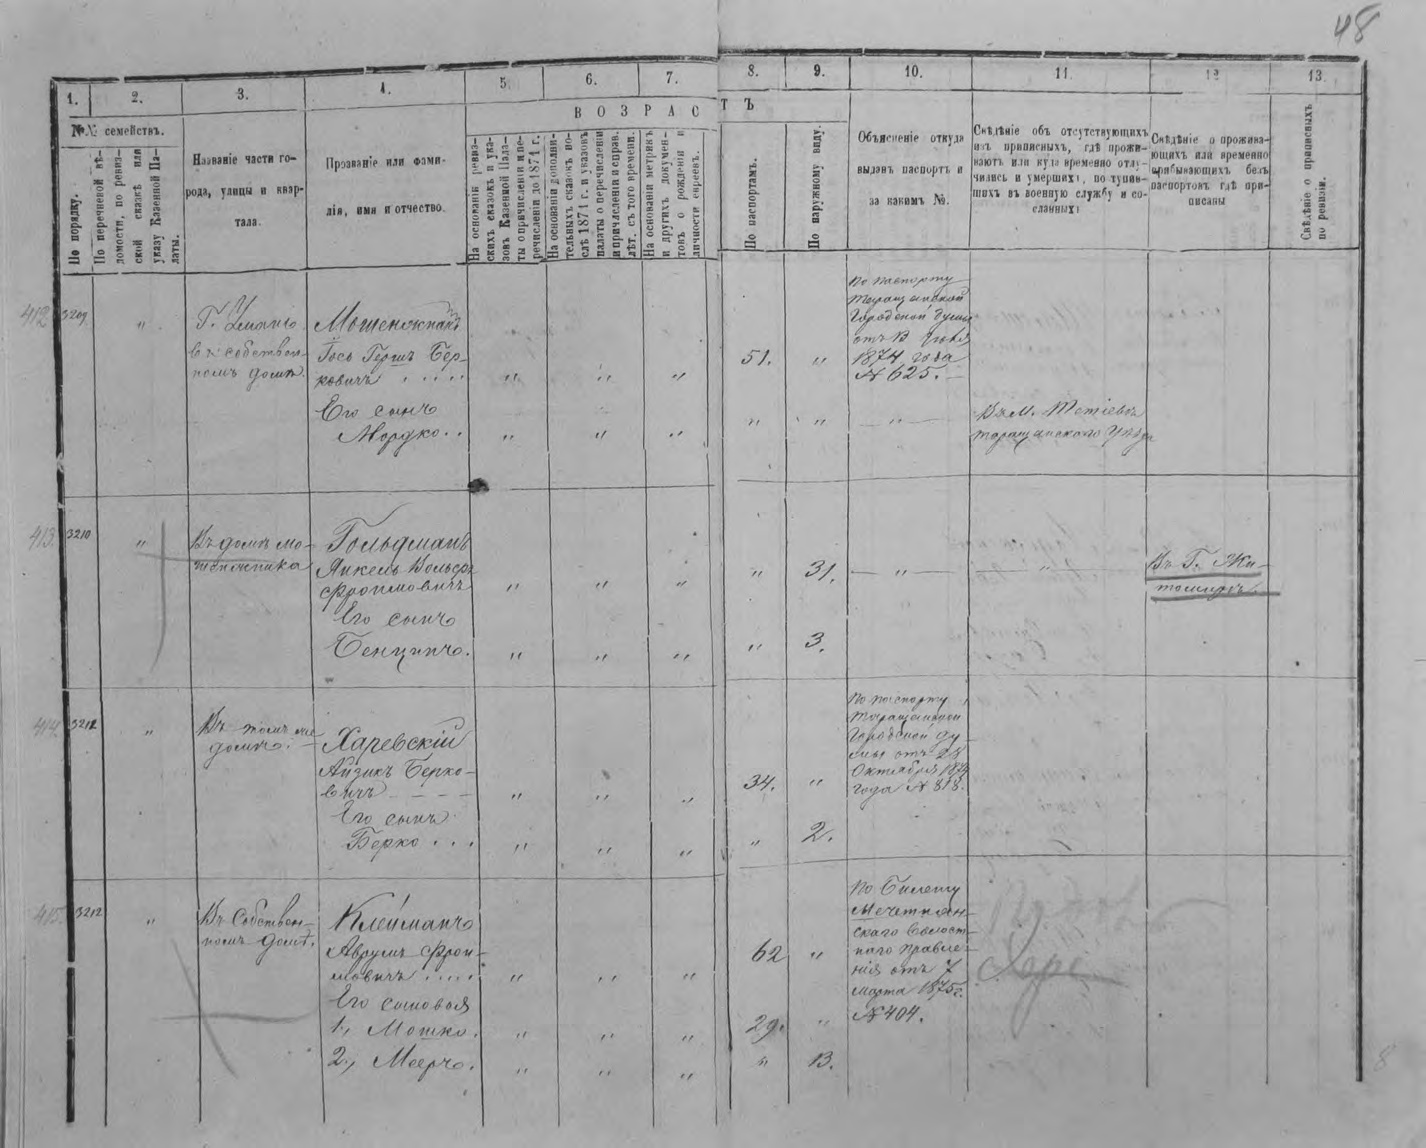 48
1.
2.
3.
4.
5.
6.
7.
8.
9.
10.
11.
12
13.
ВОЗРАСТЪ
№№ семействъ.
По порядку.
По перечневой вѣ-
домости, по ревиз-
ской сказкѣ или
указу Казенной Па-
латы.
Названіе части го-
рода, улицы и квар-
тала.
Прозваніе или фами-
лія, имя и отчество.
На основаніи ревиз-
скихъ сказокъ и ука-
зовъ Казенной Пала-
ты о причисленіи и пе-
речисленіи до 1874 г.
На основаніи дополни-
тельныхъ сказокъ по-
слѣ 1874 г. и указовъ
палаты о перечисленіи
и причисленіи и справ.
лѣт. съ того времени.
На основаніи метрикъ
и другихъ докумен-
товъ о рожденіи и
личности евреевъ.
По паспортамъ.
По наружному виду.
Объясненіе откуда
выданъ паспортъ и
за какимъ №.
Свѣдѣніе объ отсутствующихъ
изъ приписныхъ, гдѣ прожи-
ваютъ или куда временно отлу-
чились и умершихъ, поступив-
шихъ въ военную службу и со-
сланныхъ
Свѣдѣніе о прожива-
ющихъ или временно
прибывающихъ безъ
паспортовъ гдѣ при-
писаны
Свѣдѣніе о приписныхъ
по ревизіи.
412
3209
"
Г. Умань
въ собствен-
номъ домѣ.
Мошенжнакъ
Гось Гершъ Бер-
ковичъ
" " "
51.
"
По паспорту
Таращанской
Городской думы
отъ 13 Іюля
1874 года
№ 625.
Его сынъ
Мордко
" " " " " "
Въ М. Тетіевѣ
таращанскаго Уѣзда
413
3210
"
Въ домѣ мо-
Гольдманъ
Янкель Вольфъ
Фроимовичъ
" " " "
31.
" "
Въ Г. Жи-
томирѣ.
Его сынъ
Бенціонъ.
" " " "
3.
414
3212
"
Въ томъ же
домѣ.
Харевскій
Айзикъ Берко-
вичъ
" " "
34.
"
По паспорту
Таращанской
Городской ду-
мы отъ 28
Октября 1874
года № 818.
Его сынъ
Берко
" " " "
2.
415
3212
"
Въ Собствен-
номъ домѣ.
Клейманъ
Аврумъ Фрои-
мовичъ
" " "
62
"
По билету
Мечетнян-
скаго Волост-
наго правле-
нія отъ 7
Марта 1875 г.
№ 404.
Его сыновья
1., Мошко.
" " "
29.
"
2., Меерѣ.
" " " "
13.
8